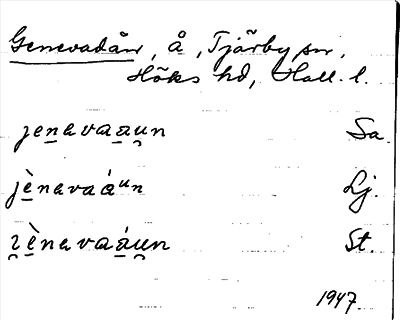 Genevadån, å, Tjärby sn,
Höks hd, Hall. l.
jenavaaun Sa.
jènavaáun Lj.
ɿènavaáun St.
1947